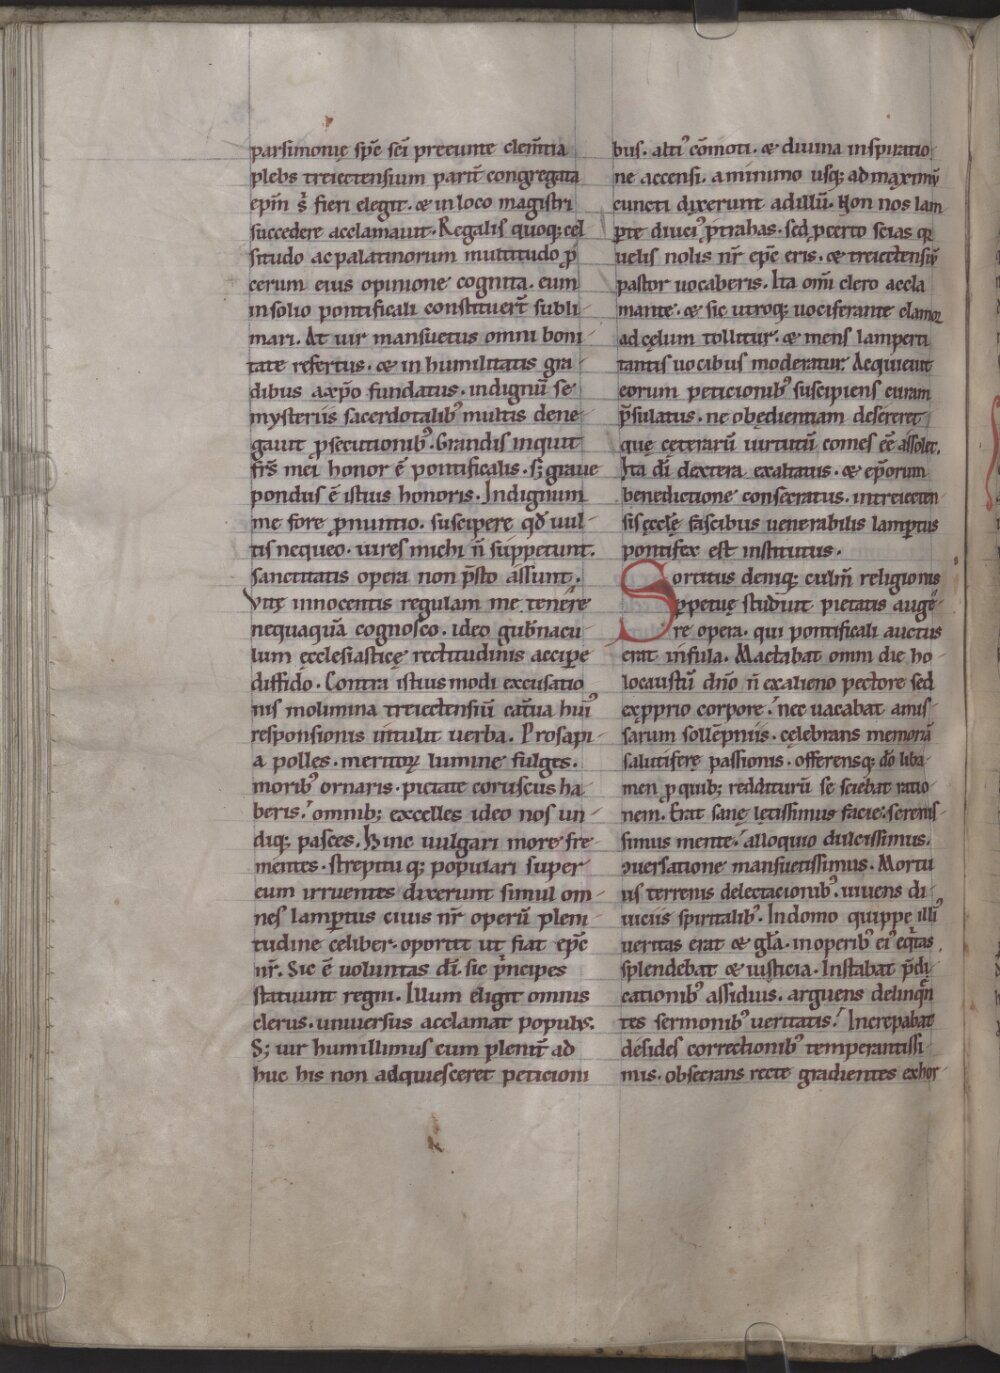 parsimonię spe̅ sc̅i preeunte clem̅tia
plebs treiectensium parit̅ congregata
ep̅m s̅ fieri elegit. & in loco magistri
succedere acclamauit. Regalis quoq; cel
situdo ac palatinorum multitudo p̅
cerum eius opinione cognita. eum
in solio pontificali constituer̅t subli
mari. At uir mansuetus omni boni
tate refertus. & in humilitatis gra
dibus a xp̅o fundatus. indignu̅ se
mysteriis sacerdotalib' multis dene
gauit p̲secutionib'. Grandis inquit
fr̅s mei honor e̅ pontificalis. s; graue
pondus e̅ istius honoris. Indignum
me fore p̲nuntio. suscipere qd̅ uul
tis nequeo. uires michi n̅ suppetunt.
sanctitatis opera non p̅sto assunt.
Vitę innocentis regulam me tenere
nequaqua̅ cognosco. ideo gub̅nacu
lum ęcclesiasticę rectitudinis accip̲e
diffido. Contra istius modi excusatio
nis molimina treiectensiu̅ cat̅ua hui'
responsionis intulit uerba. Prosapi
a polles. meritoꝝ lumine fulges.
morib' ornaris. pietate coruscus ha
beris. omnib; excelles ideo nos un
diq; pasces. Hinc uulgari more fre
mentes. strepitu q; populari super
eum irruentes dixerunt simul om
nes lamp̲tus ciuis nr̅ operu̅ pleni
tudine celiber. oportet ut fiat ep̅c
nr̅. Sic e̅ uoluntas di̅. sic p̅ncipes
statuunt regni. Illum eligit omnis
clerus. uniuersus acclamat populus.
S; uir humillimus cum plenit̅ ad
huc his non adquiesceret peticioni
bus. alti' co̅moti. & diuina inspiratio
ne accensi. a minimo usq; ad maximu̅
cuncti dixerunt ad illu̅. Non nos lam
p̲te diuci' p̲trahas. sed p̲ certo scias q̲
uelis nolis nr̅ ep̅c eris. & treiectensiu̅
pastor uocaberis. Ita om̅i clero accla
mante. & sic utroq; uociferante clamor
ad cęlum tollitur. & mens lamperti
tantis uocibus moderatur. Acquieuit
eorum peticionib' suscipiens curam
p̅sulatus. ne obędientiam desereret
quę ceteraru̅ uirtutu̅ comes e̅e assolet.
Ita di̅ dextera exaltatus. & ep̅orum
benedictione consecratus. in treiecten
sis ęcclę̅ fascibus uenerabilis lamp̲tus
pontifex est institutus.
Sortitus deniq; culm̅ religionis
p̲petuę studuit pietatis auge
re opera. qui pontificali auctus
erat infula. Mactabat omni die ho
locaustu̅ dn̅o n̅ ex alieno pectore sed
ex p̲prio corpore. nec uacabat amis
sarum solle̅pniis. cęlebrans memoria̅
salutiferę passionis. offerensq; do̅ liba
men p̲ quib; reddituru̅ se sciebat ratio
nem. Erat sanę lętissimus facie. serenis
simus mente. alloquio dulcissimus.
ɔuersatione mansuetissimus. Mortu
us terrenis delectacionib'. uiuens di
uiciis spiritalib'. In domo quippe illi'
ueritas erat & gl̅a. in operib' ei' eq̅tas
splendebat & iusticia. Instabat p̅di
cationib' assiduis. arguens delinqn̅
tes sermonib' ueritatis. Increpabat
desides correctionib' temperantissi
mis. obsecrans recte gradientes exhor